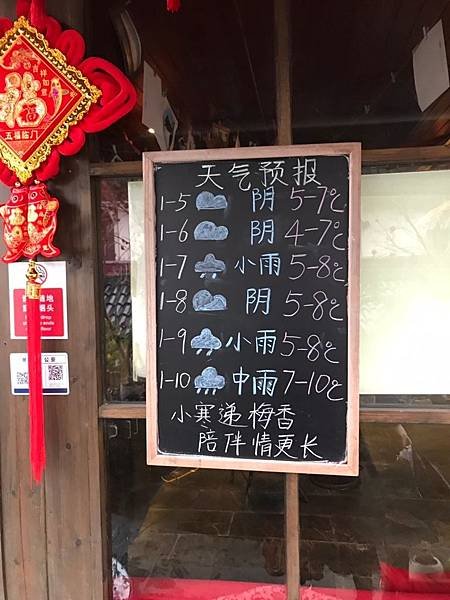 吉祥
如意
福
五福临门
天气预报
1-5 阴 5-7℃
1-6 阴 4-7℃
1-7 小雨 5-8℃
1-8 阴 5-8℃
1-9 小雨 5-8℃
1-10 中雨 7-10℃
小寒递梅香
陪伴情更长